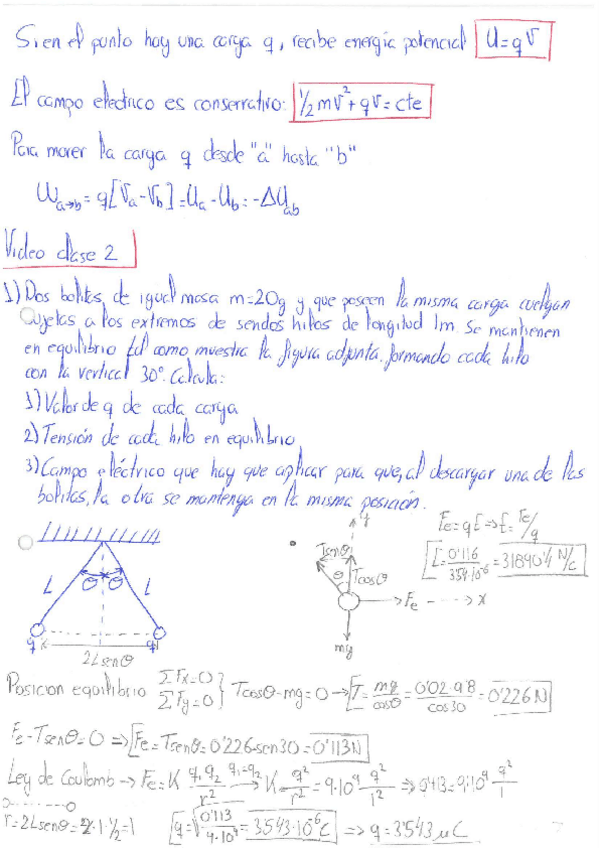 Si en el punto hay una carga q, recibe energía potencial U=qV
El campo electrico es conservativo: 1/2 mV²+qV=cte
Para mover la carga q desde "a" hasta "b"
Wa→b=q[Va-Vb]=Ua-Ub=-ΔUab
Video clase 2
1) Dos bolitas de igual masa m=20g y que poseen la misma carga cuelgan
sujetas a los extremos de sendos hilos de longitud 1m. Se mantienen
en equilibrio tal como muestra la figura adjunta, formando cada hilo
con la vertical 30º. Calcula:
1) Valor de q de cada carga
2) Tensión de cada hilo en equilibrio
3) Campo eléctrico que hay que aplicar para que, al descargar una de las
bolitas, la otra se mantenga en la misma posición.
Fe=qE⇒E=Fe/q
E=0'116/3'54·10⁻⁶=31890'4 N/C
y
Tsenθ
θ
Tcosθ
Fe
x
mg
L
θ
θ
L
q
q
2Lsenθ
Posicion equilibrio ΣFx=0 ΣFy=0} Tcosθ-mg=0→T=mg/cosθ=0'02·9'8/cos30=0'226N
Fe-Tsenθ=0⇒Fe=Tsenθ=0'226·sen30=0'113N
Ley de Coulomb→Fe=K q₁q₂/r² q₁=q₂→ K q²/r²=9·10⁹ q²/1²⇒0'113=9·10⁹ q²/1
r=2Lsenθ=2·1·1/2=1
q=√0'113/9·10⁹=3'543·10⁻⁶C⇒q=3'543μC